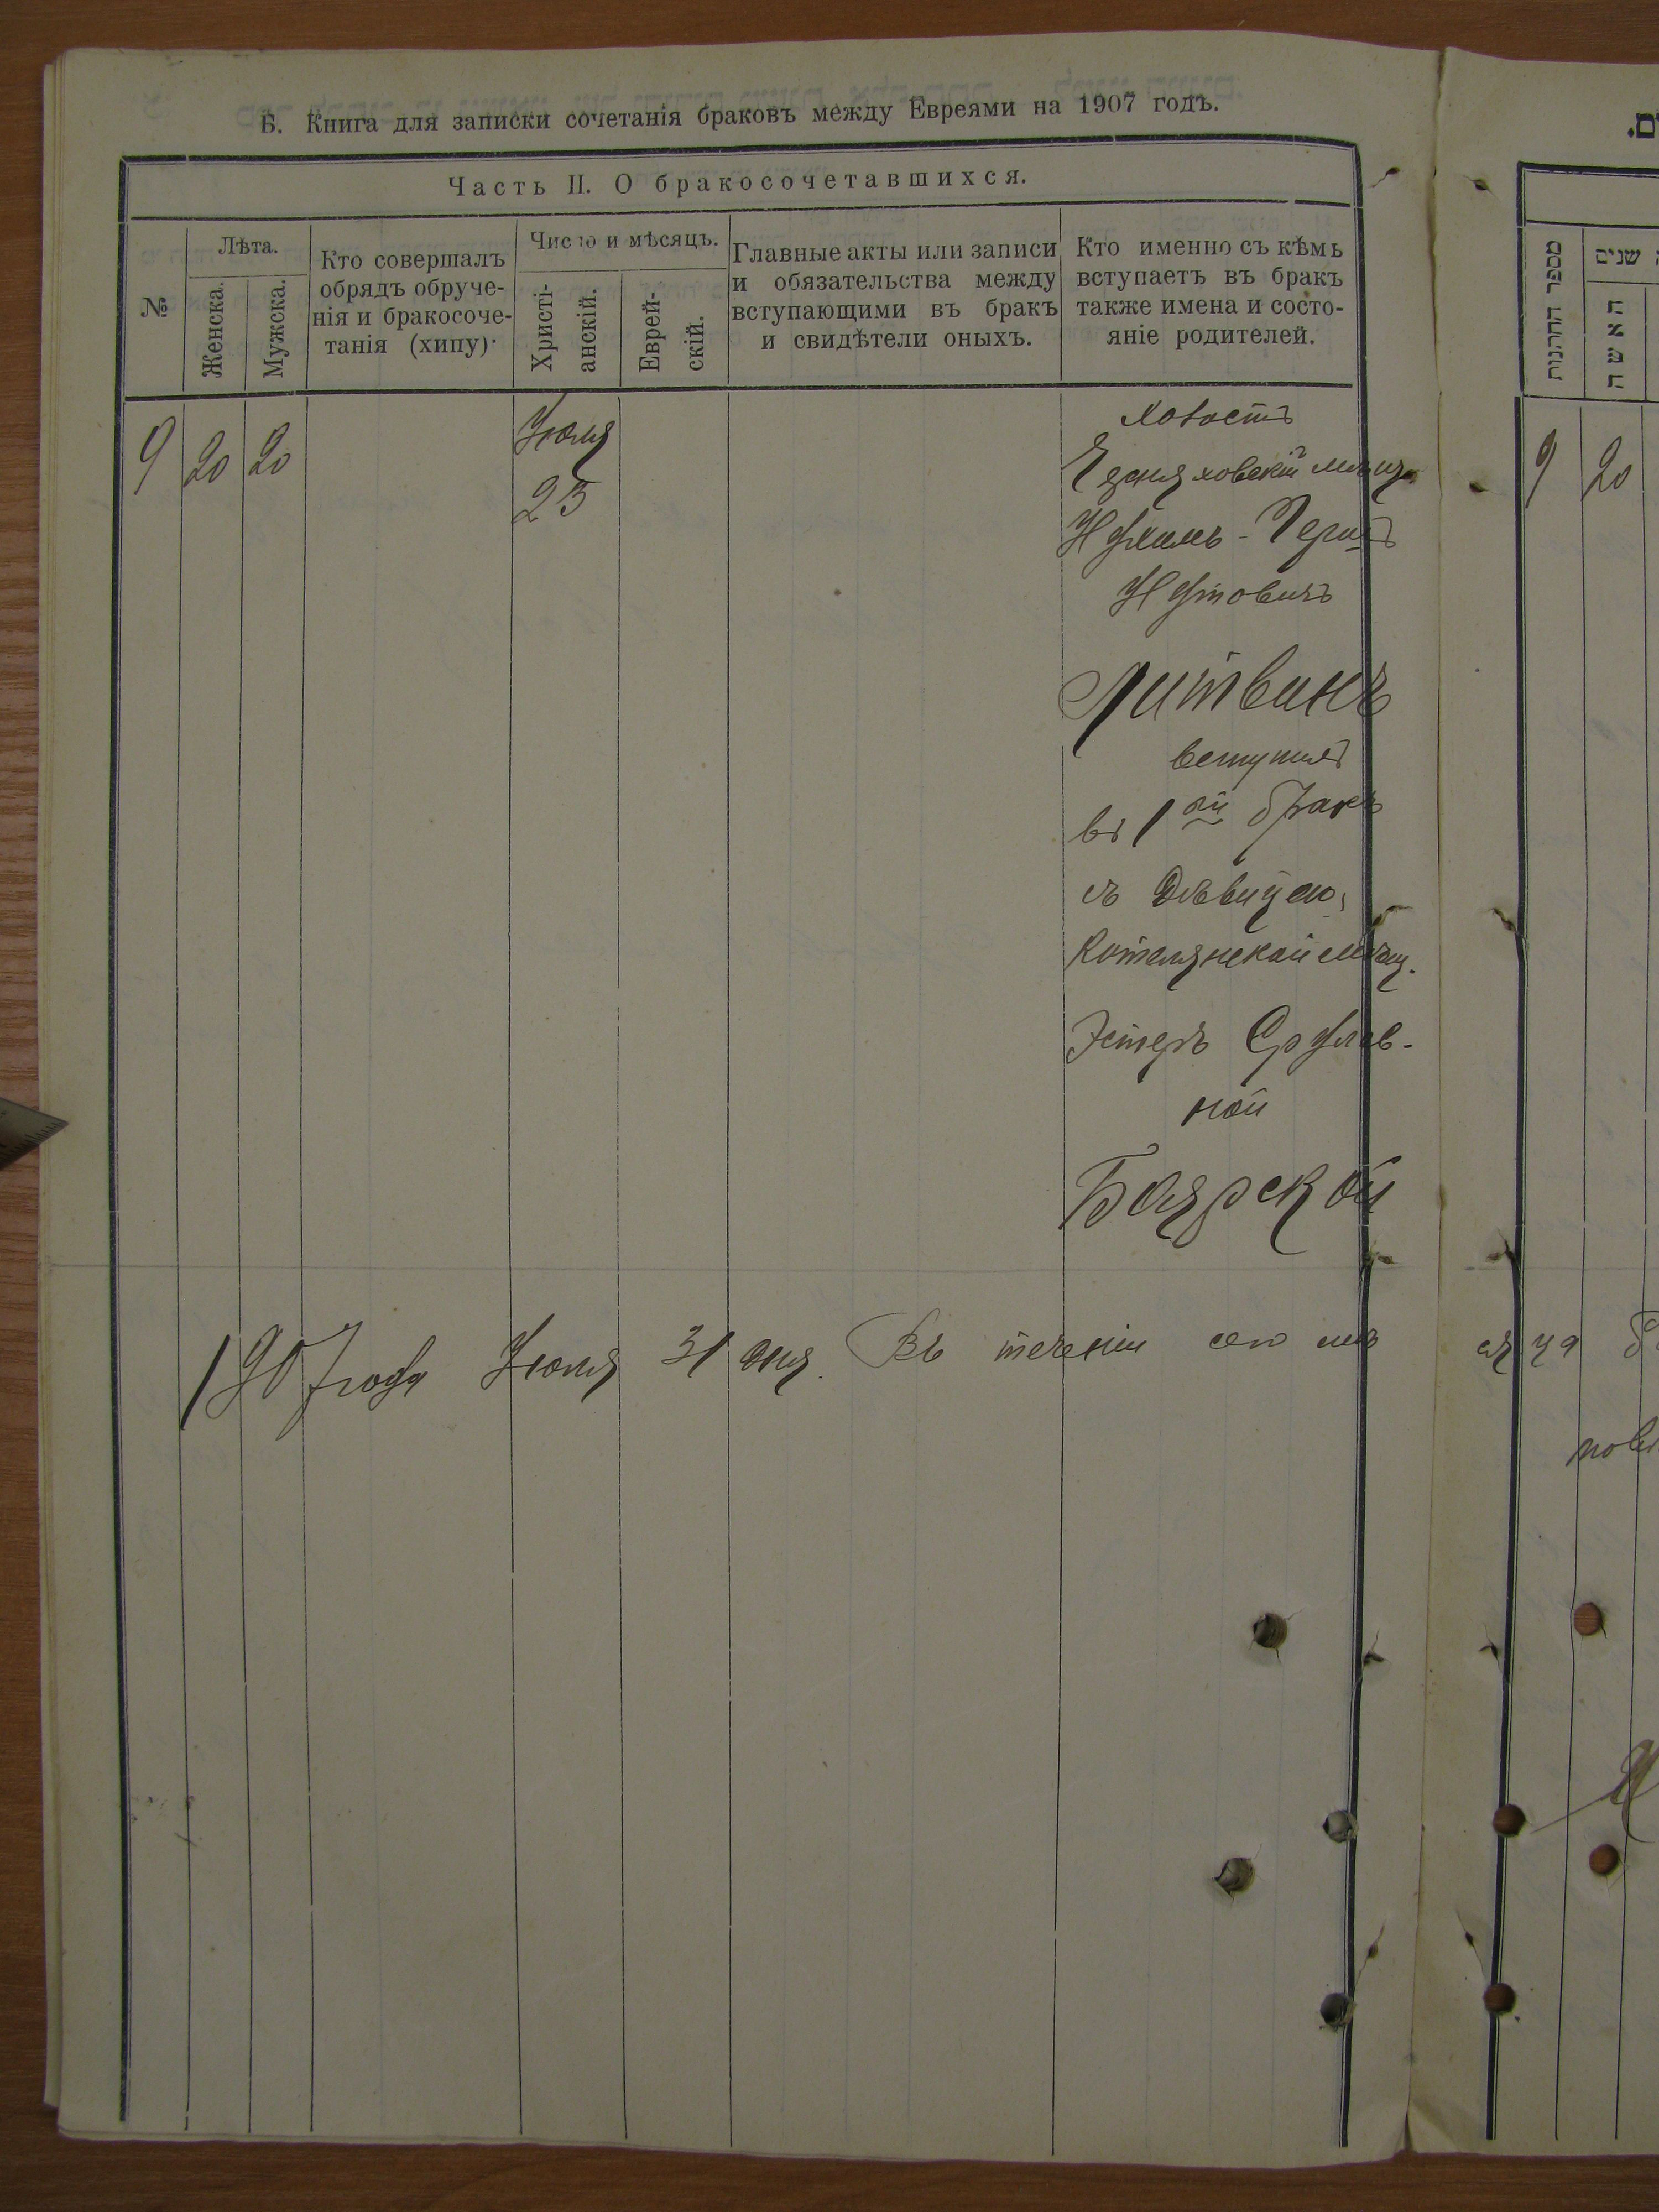 Б. Книга для записки сочетанія браковъ между Евреями на 1907 годъ.
Часть II. О бракосочетавшихся.
№
Лѣта.
Женска.
Мужска.
Кто совершалъ
обрядъ обруче-
нія и бракосоче-
танія (хипу).
Число и мѣсяцъ.
Христі-
анскій.
Еврей-
скій.
Главные акты или записи
и обязательства между
вступающими въ бракъ
и свидѣтели оныхъ.
Кто именно съ кѣмъ
вступаетъ въ бракъ
также имена и состо-
яніе родителей.
9 20 20
Іюля
25
Холостъ
мѣщ.
Нухимъ-
Нутовичъ
Литвинъ
вступилъ
въ 1ой бракъ
съ дѣвицею,
Котелянской мѣщ.
Эстеръ Срулев-
ной
Боярской
1907 года Іюля 31 дня. Въ теченіи сего мѣ
сяца
מספר החתנות
שנים
האשה
9 20